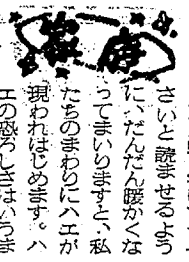 さいと読ませるよう
に、だんだん暖かくな
ってまいりますと、私
たちのまわりにハエが
現われはじめます。ハ
エの恐ろしさはいうま